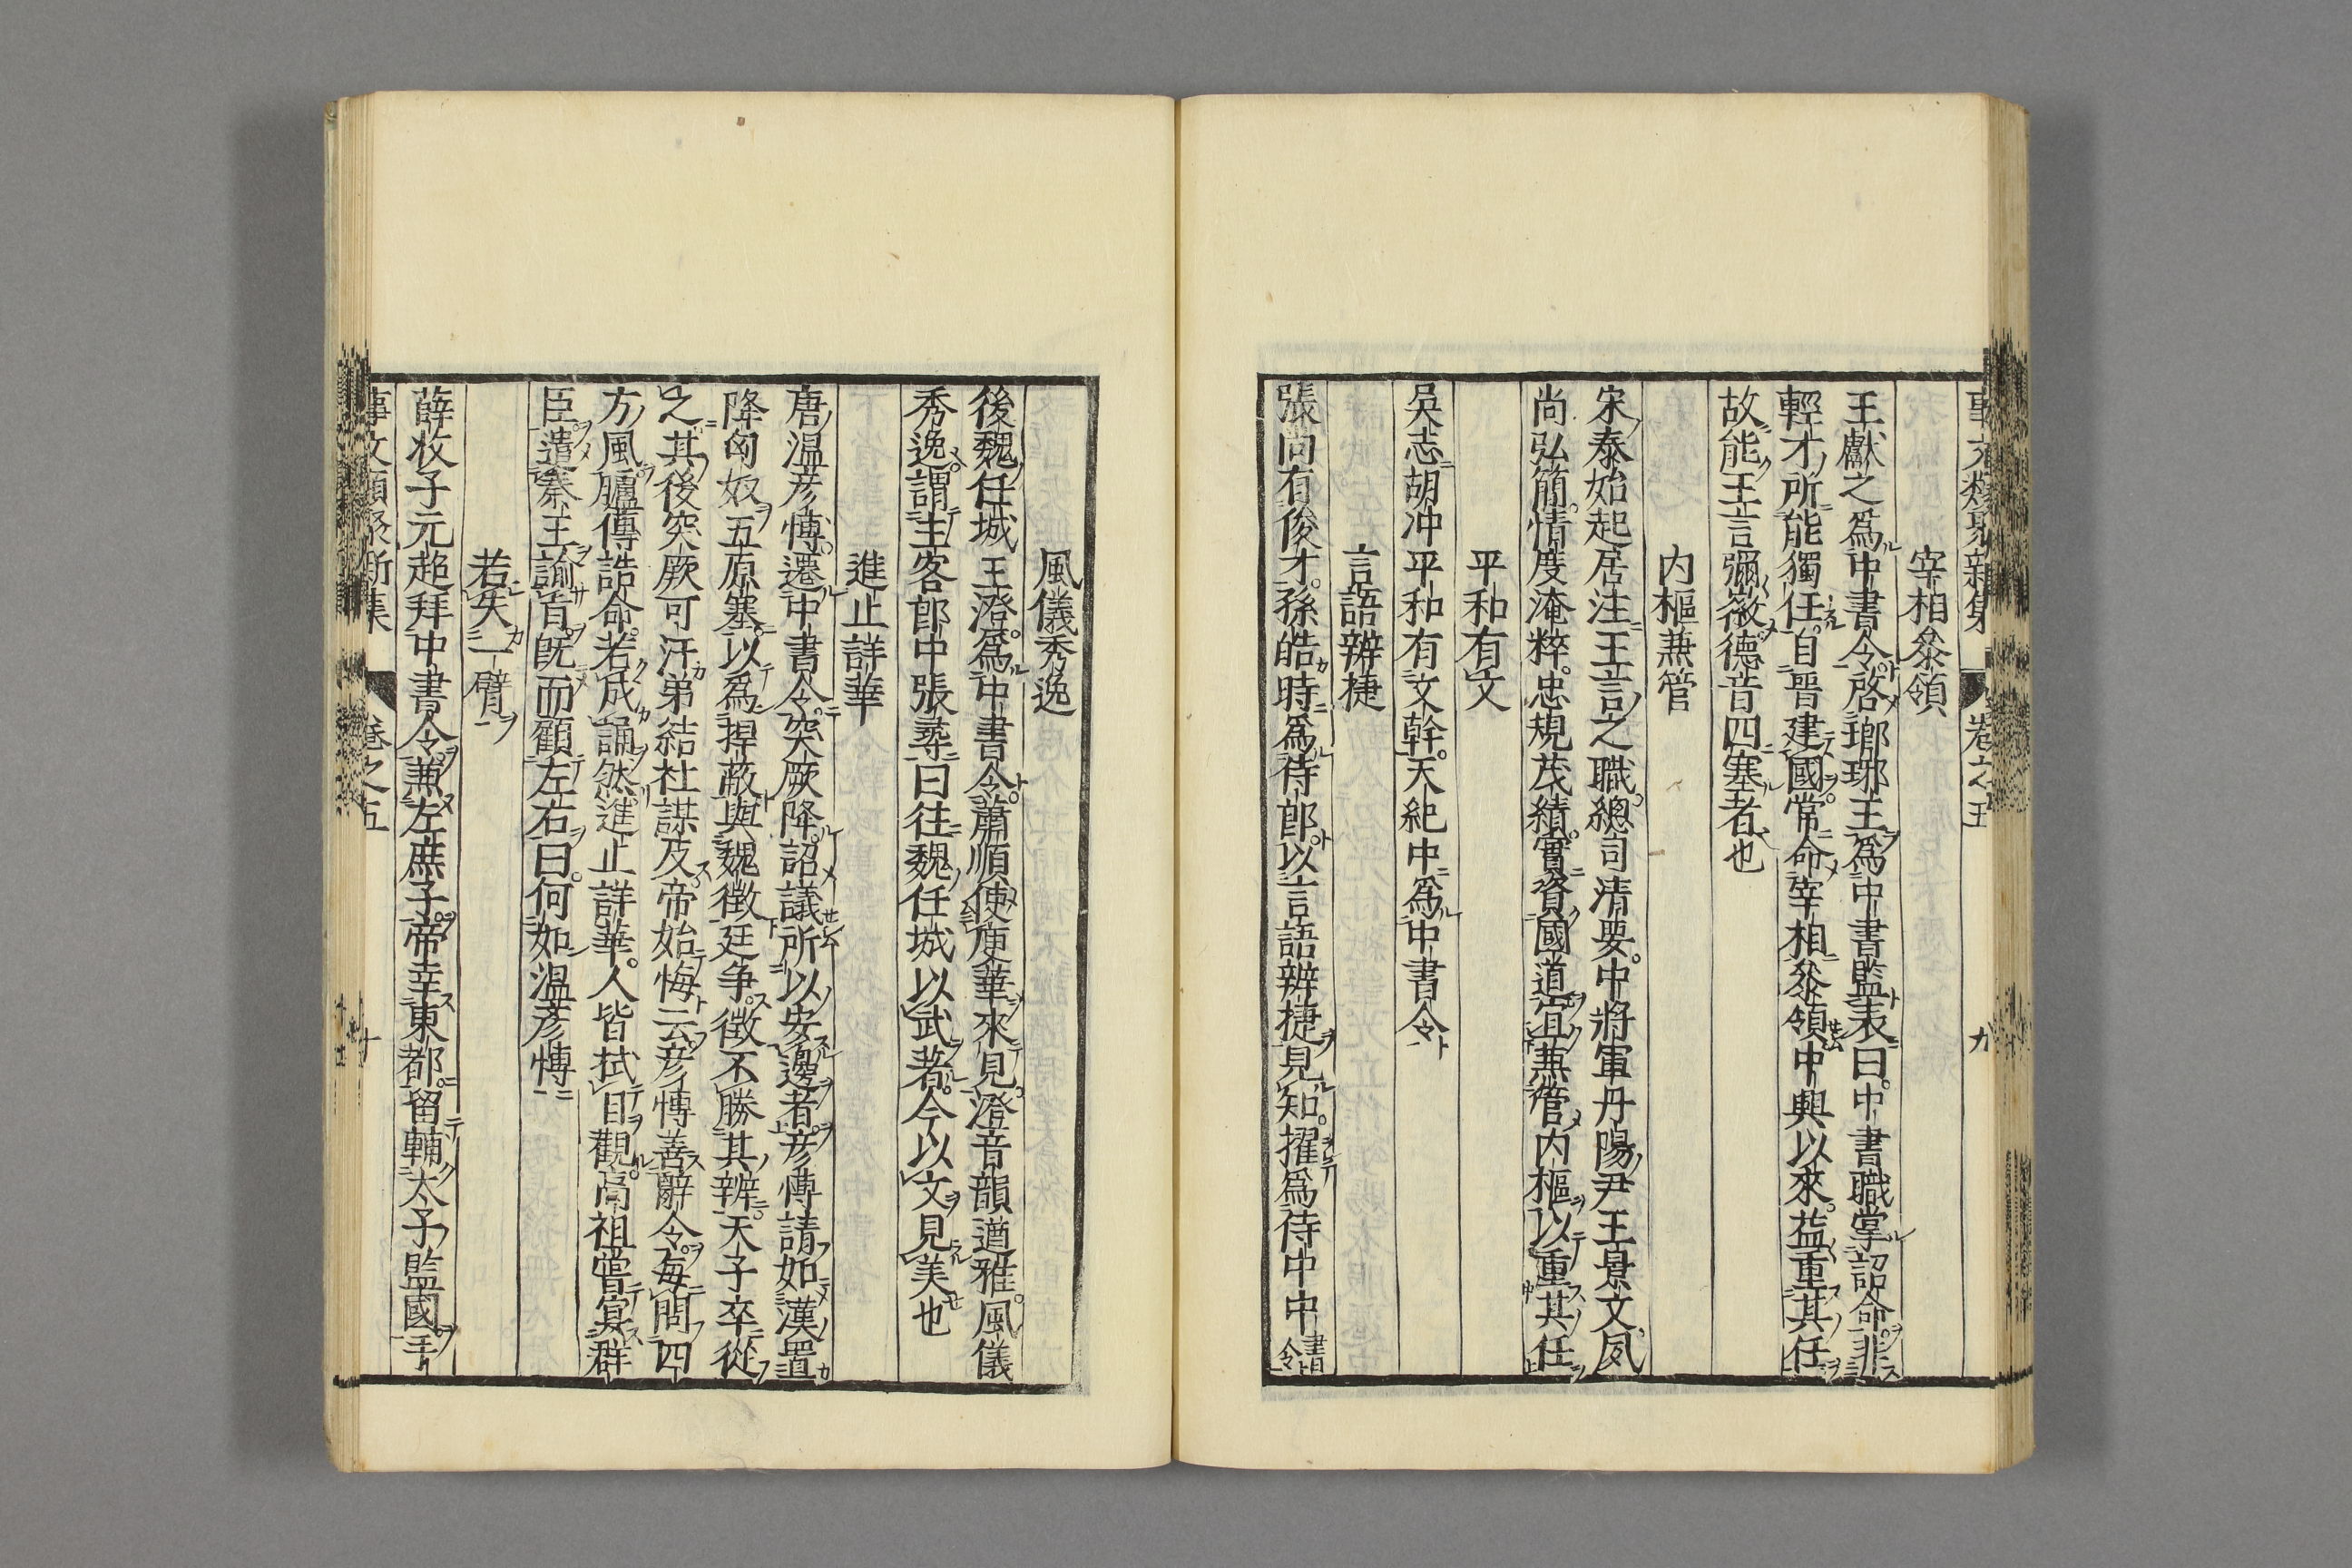 事文類聚新集 卷之五 九
宰相叅領
王獻之爲中書令啓瑯琊王爲中書監表曰中書職掌詔命非
輕才所能獨任自晋建國常命宰相叅領中興以來益重其任
故能王言彌徽德音四塞者也
内樞兼管
宋泰始起居注王言之職總司清要中將軍丹陽尹王景文夙
尚弘簡情度淹粹忠規茂績實資國道宜兼管内樞以重其任
平和有文
吳志胡冲平和有文幹天紀中爲中書令
言語辨捷
張尚有俊才孫皓時爲侍郎以言語辨捷見知擢爲侍中中書令
風儀秀逸
後魏任城王澄爲中書令蕭順使庾華來見澄音韻遒雅風儀
秀逸謂主客郎中張彛曰往魏任城以武著今以文見美也
進止詳華
唐温彦慱遷中書令突厥降詔議所以安邊者彦慱請如漢置
降匈奴五原塞以爲捍蔽與魏徵廷争徵不勝其辨天子卒從
之其後突厥可汗弟結社謀反帝始悔云彦慱善辭令每問四
方風臚傳誥命若成誦然進止詳華人皆拭目觀高祖嘗宴群
臣遣秦王諭旨旣而顧左右曰何如温彦慱
若失一臂
薛收子元超拜中書令兼左庶子帝幸東都留輔太子監國手
事文類聚新集 卷之五 十